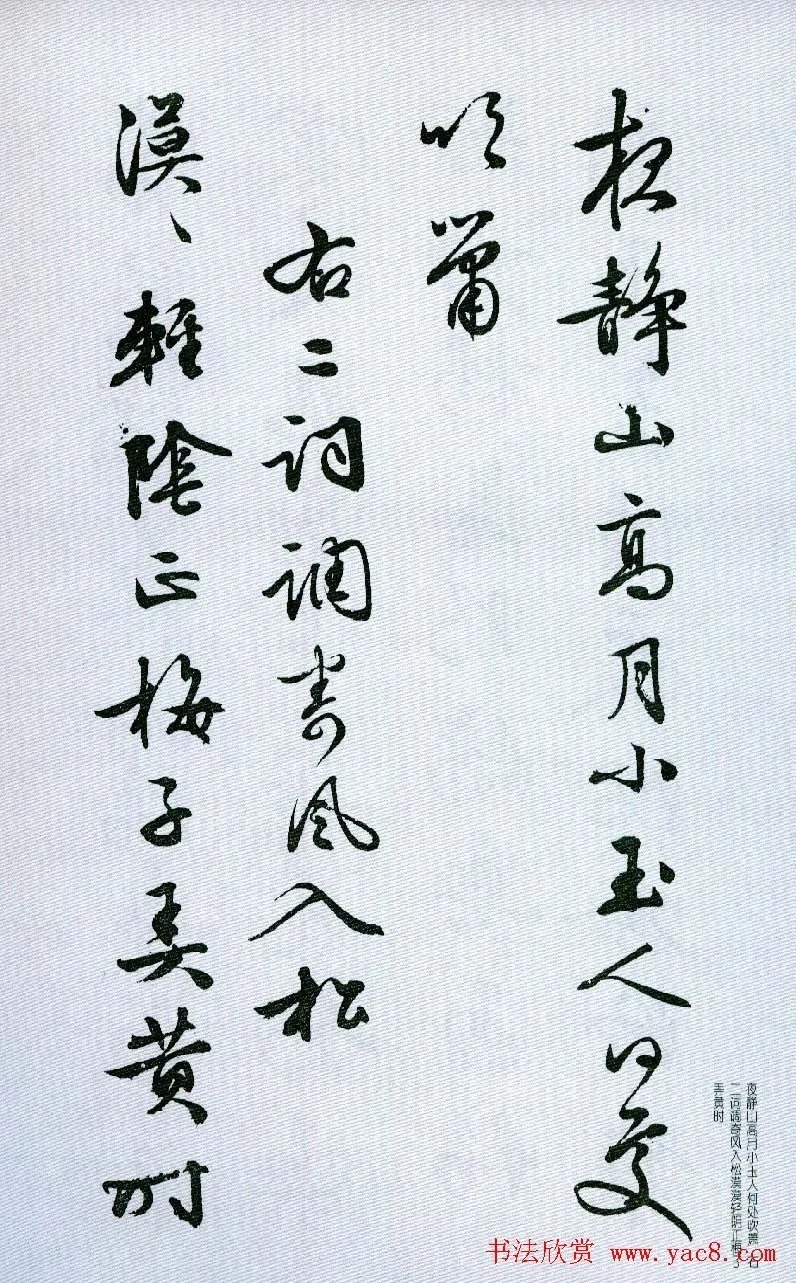 夜静山高月小玉人何處
吹簫
右二词調寄风入松
漠漠輕陰正梅子弄黄时
夜静山高月小玉人何处吹箫 右
二词调寄风入松漠漠轻阴正梅子
弄黄时
书法欣赏 www.yac8.com